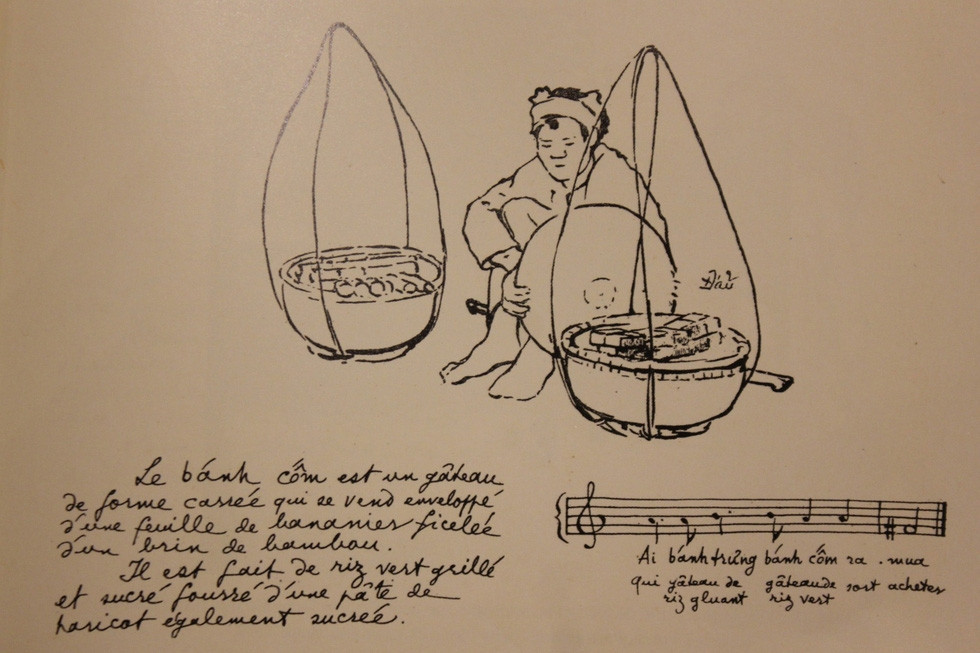 Đẩu
Le bánh cốm est un gâteau
de forme carrée qui se vend enveloppé
d'une feuille de bananier ficelée
d'un brin de bambou.
Il est fait de riz vert grillé
et sucré fourré d'une pâte de
haricot également sucrée.
Ai bánh trưng bánh cốm ra . mua
qui gâteau de gâteau de sort acheter
riz gluant riz vert